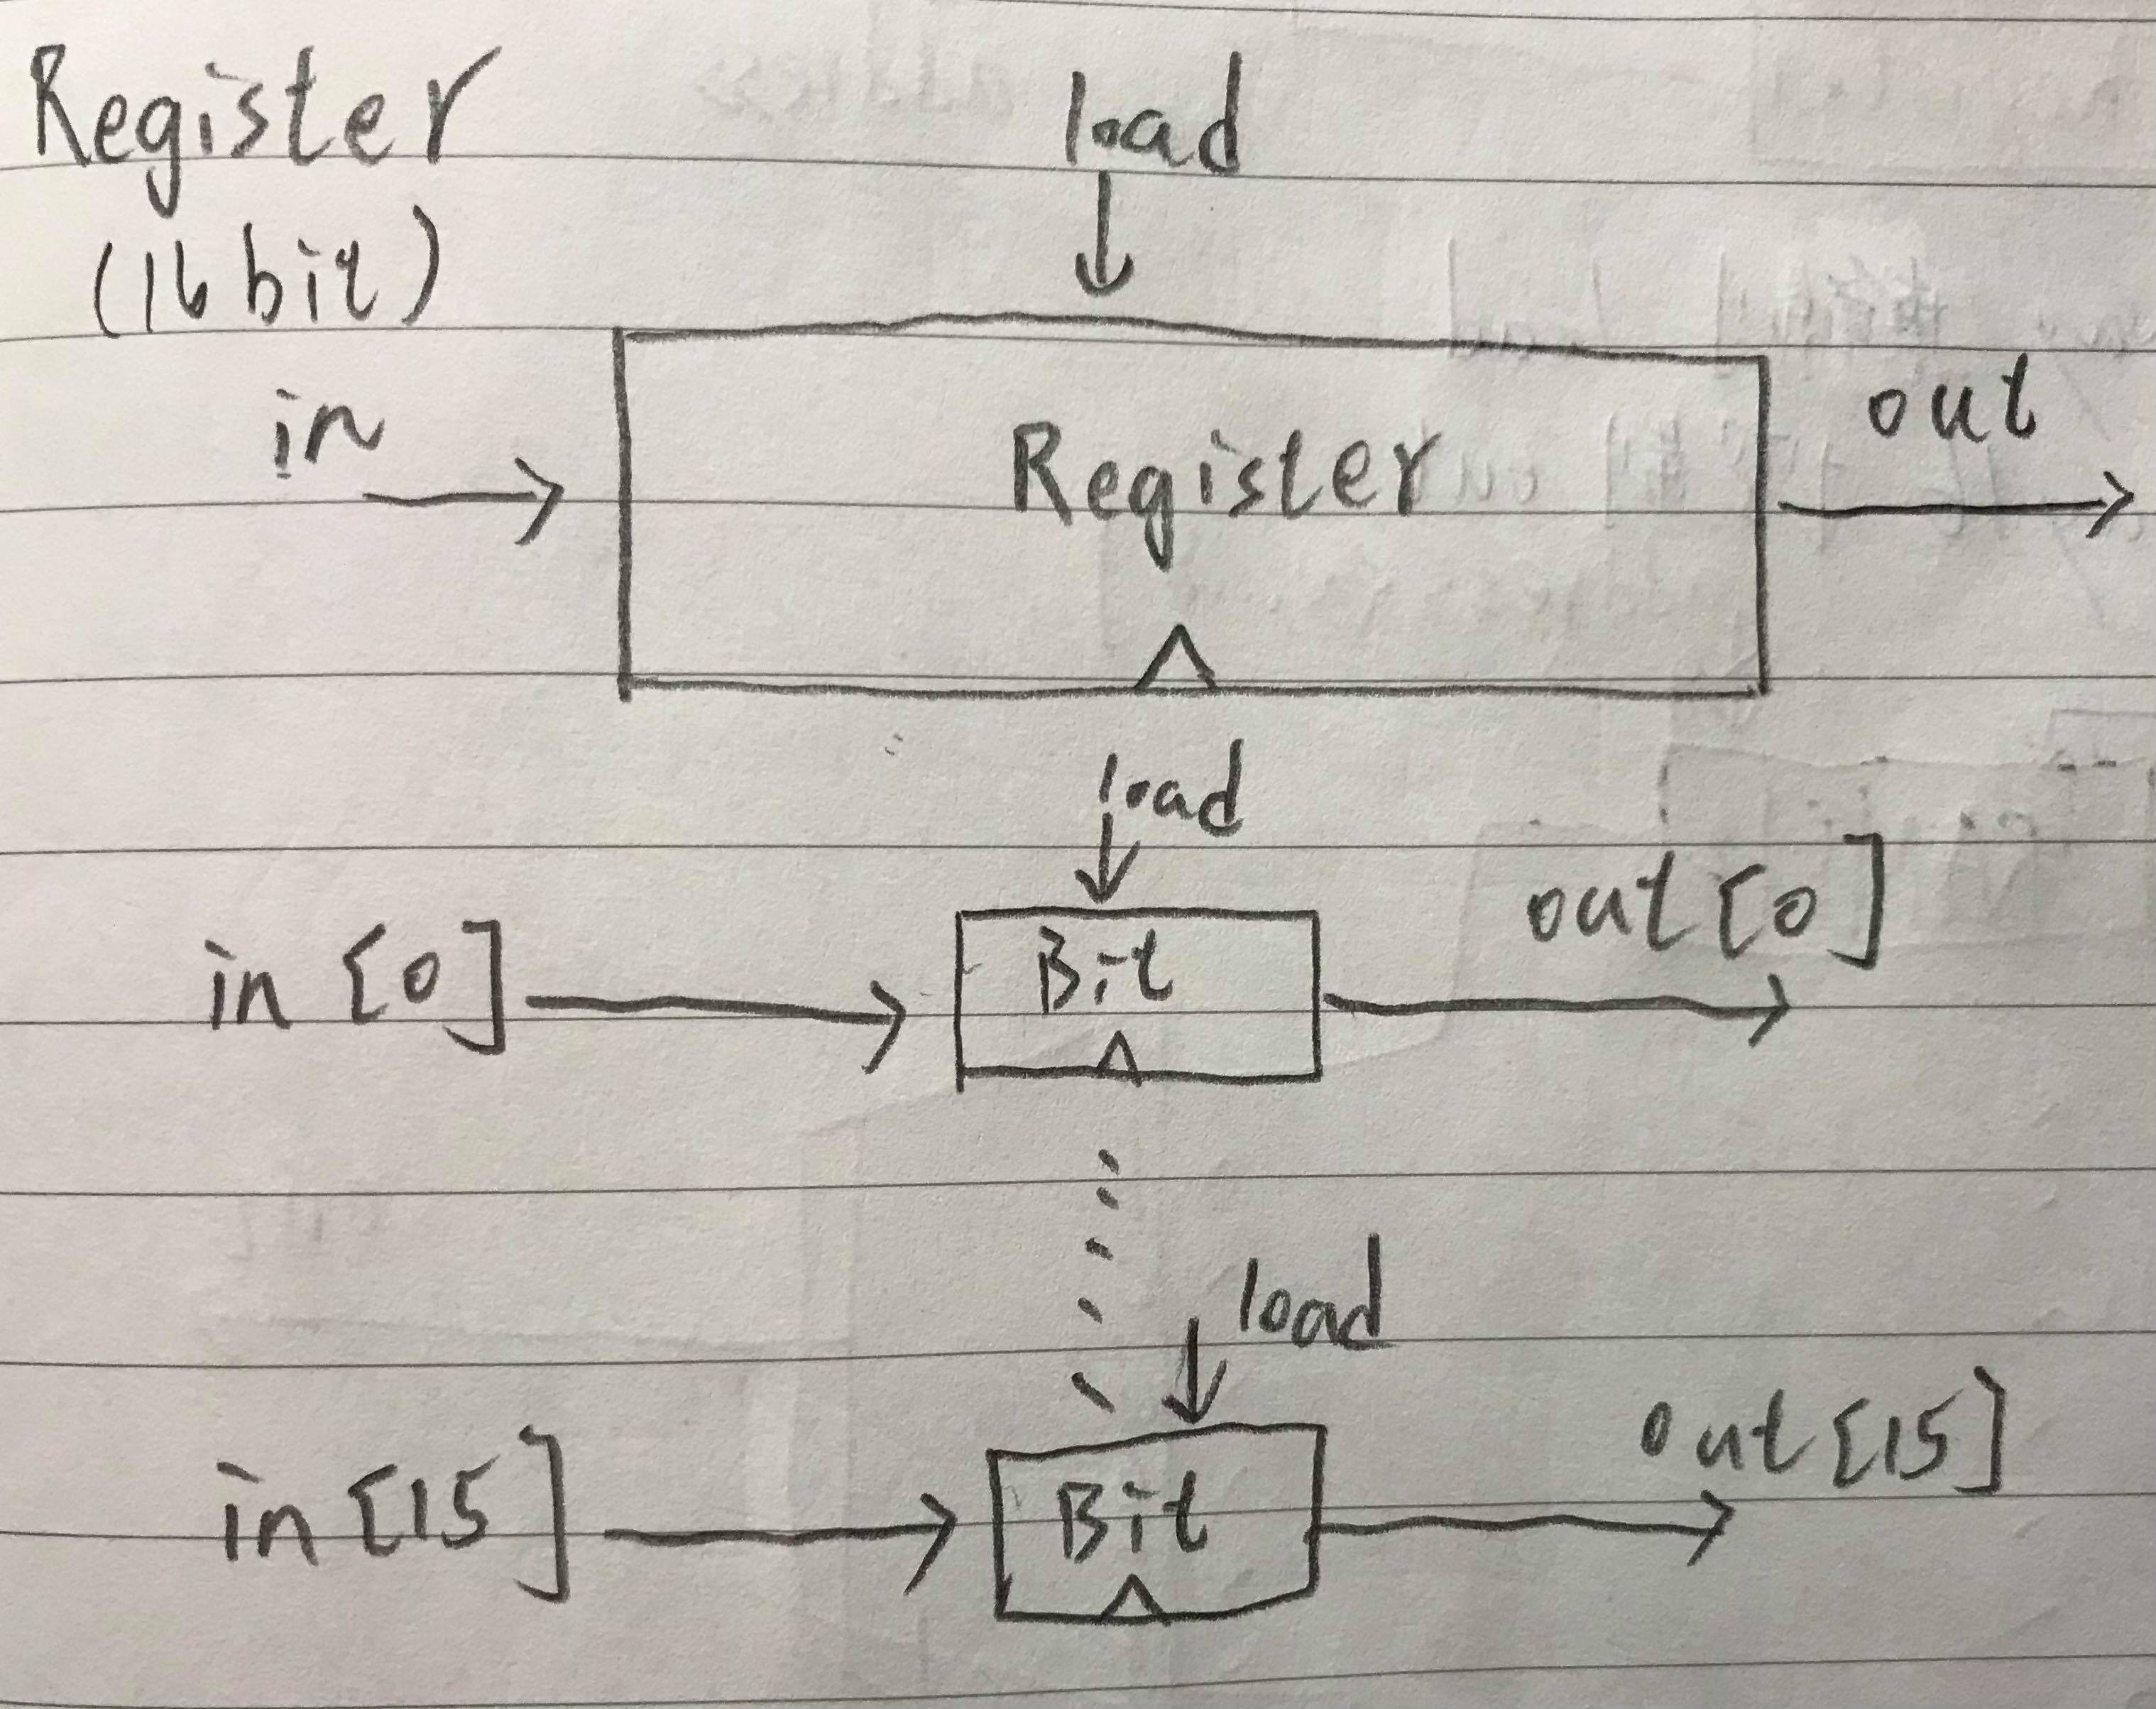 Register
(16 bit)
load
in
Register
out
load
in [0]
Bit
out [0]
load
in [15]
Bit
out [15]